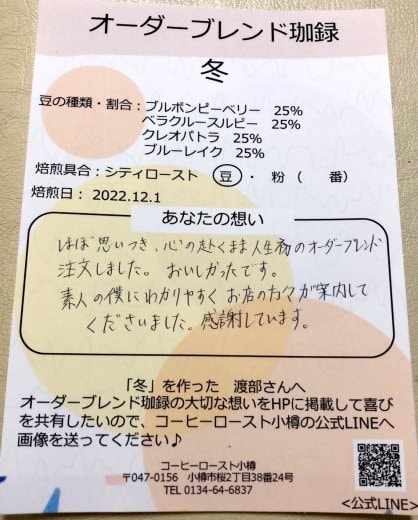 オーダーブレンド珈録
冬
豆の種類・割合：ブルボンピーベリー 25%
ベラクルースルビー 25%
クレオパトラ 25%
ブルーレイク 25%
焙煎具合：シティロースト 豆・粉（ 番）
焙煎日： 2022.12.1
あなたの想い
ほぼ思いつき、心の赴くまま人生初のオーダーブレンド
注文しました。おいしかったです。
素人の僕にわかりやすくお店の方々が案内して
くださいました。感謝しています。
「冬」を作った 渡部さんへ
オーダーブレンド珈録の大切な想いをHPに掲載して喜び
を共有したいので、コーヒーロースト小樽の公式LINEへ
画像を送ってください♪
コーヒーロースト小樽
〒047-0156 小樽市桜2丁目38番24号
TEL 0134-64-6837
<公式LINE>